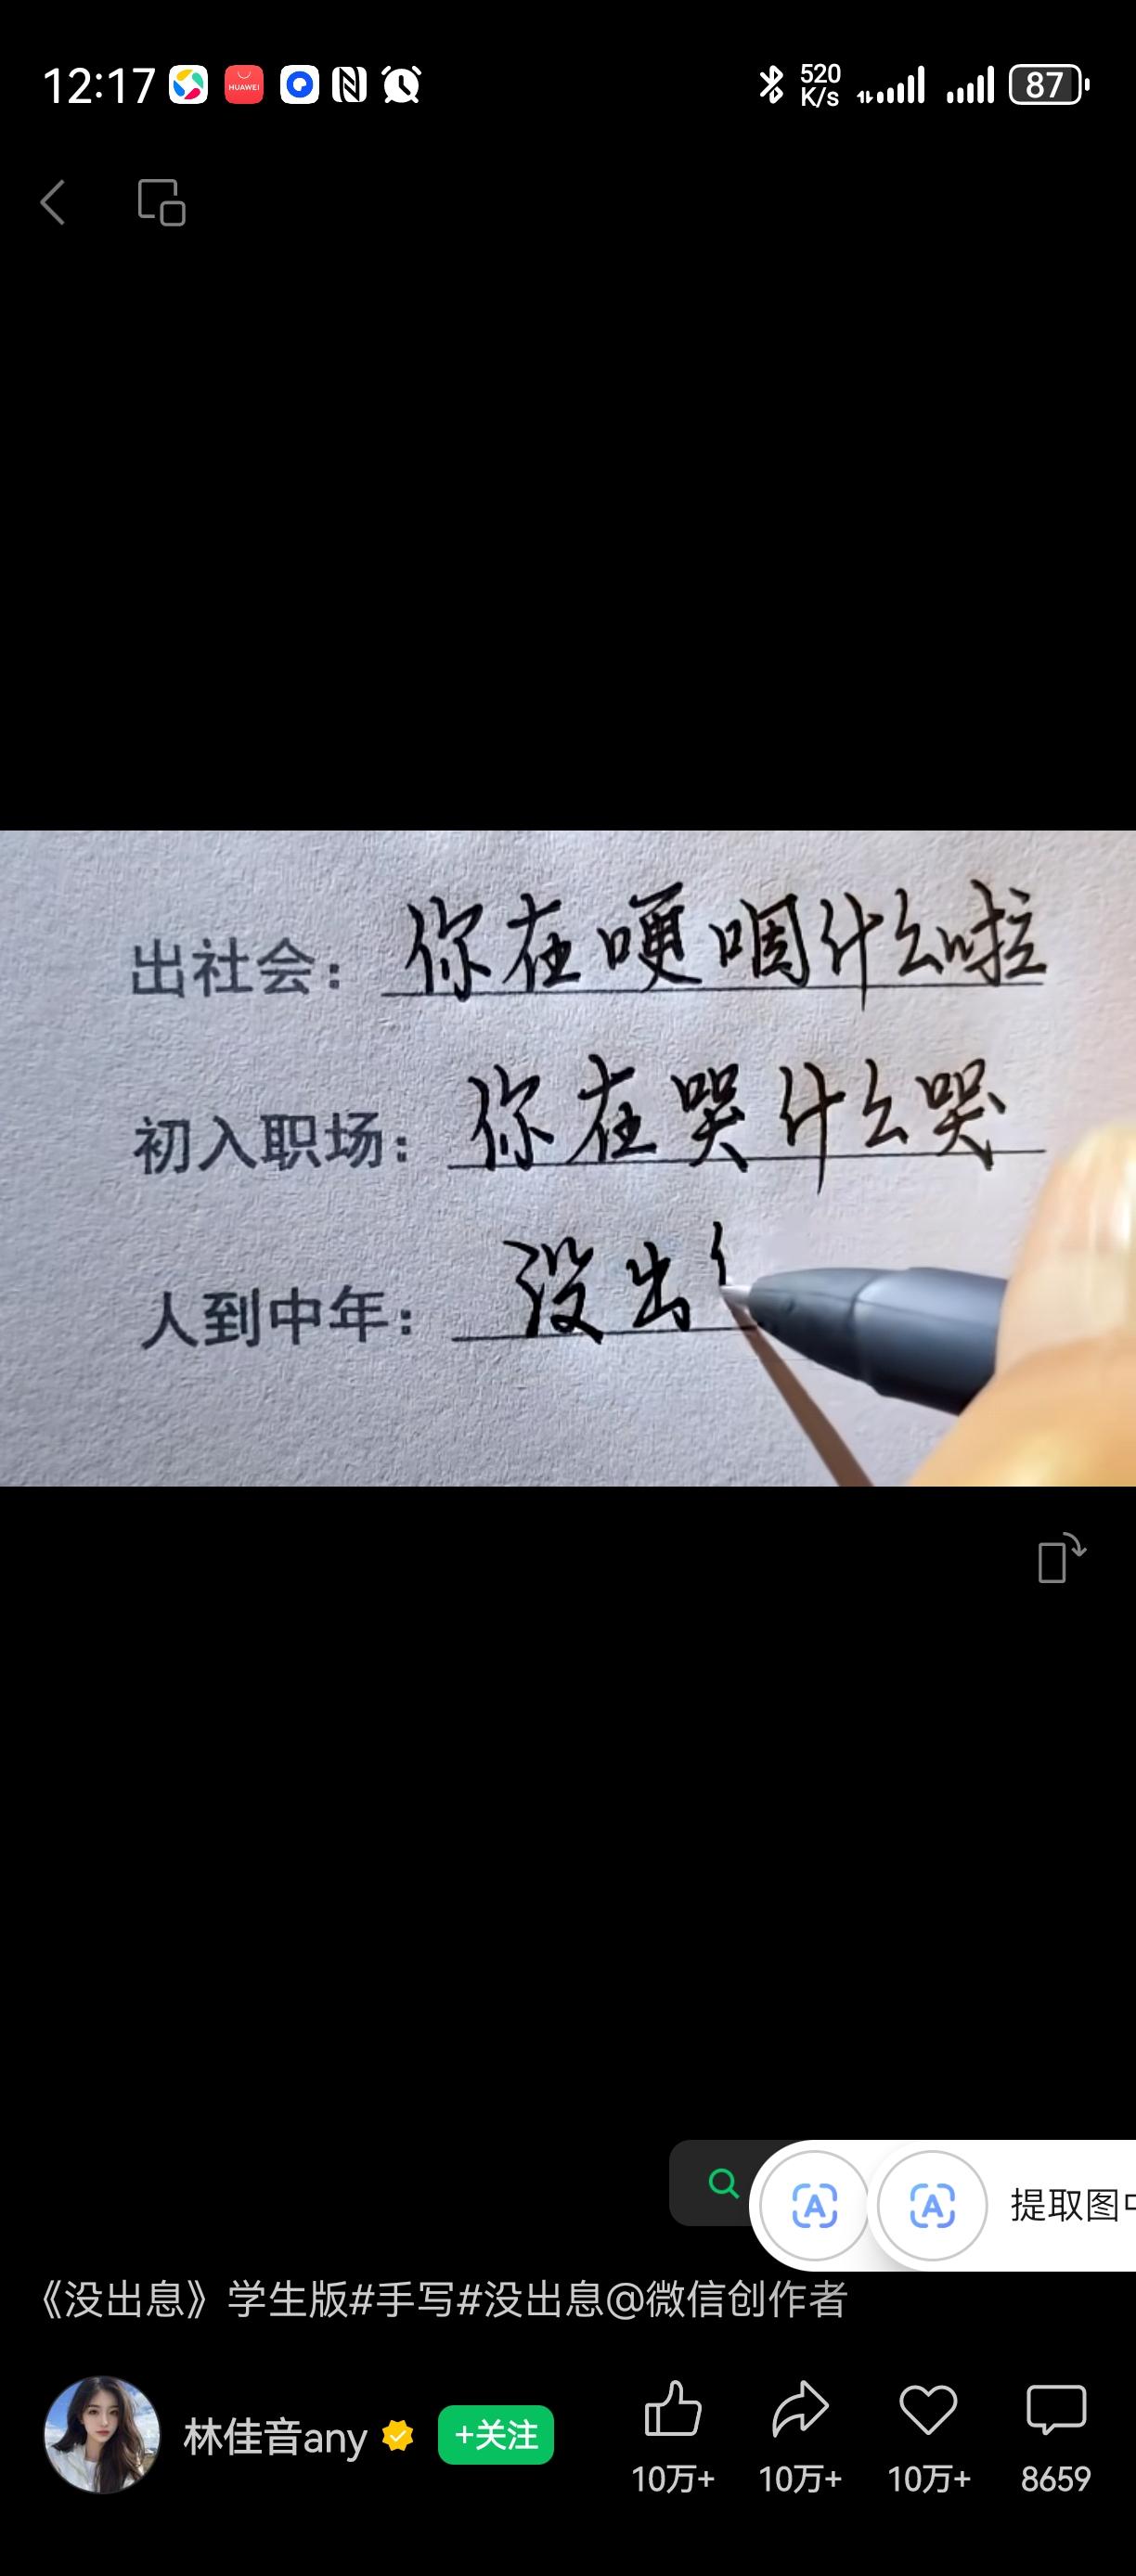 12:17
HUAWEI
520 K/s
87
出社会：你在哽咽什么啦
初入职场：你在哭什么哭
人到中年：没出
提取图
《没出息》学生版#手写#没出息@微信创作者
林佳音any
+关注
10万+ 10万+ 10万+ 8659